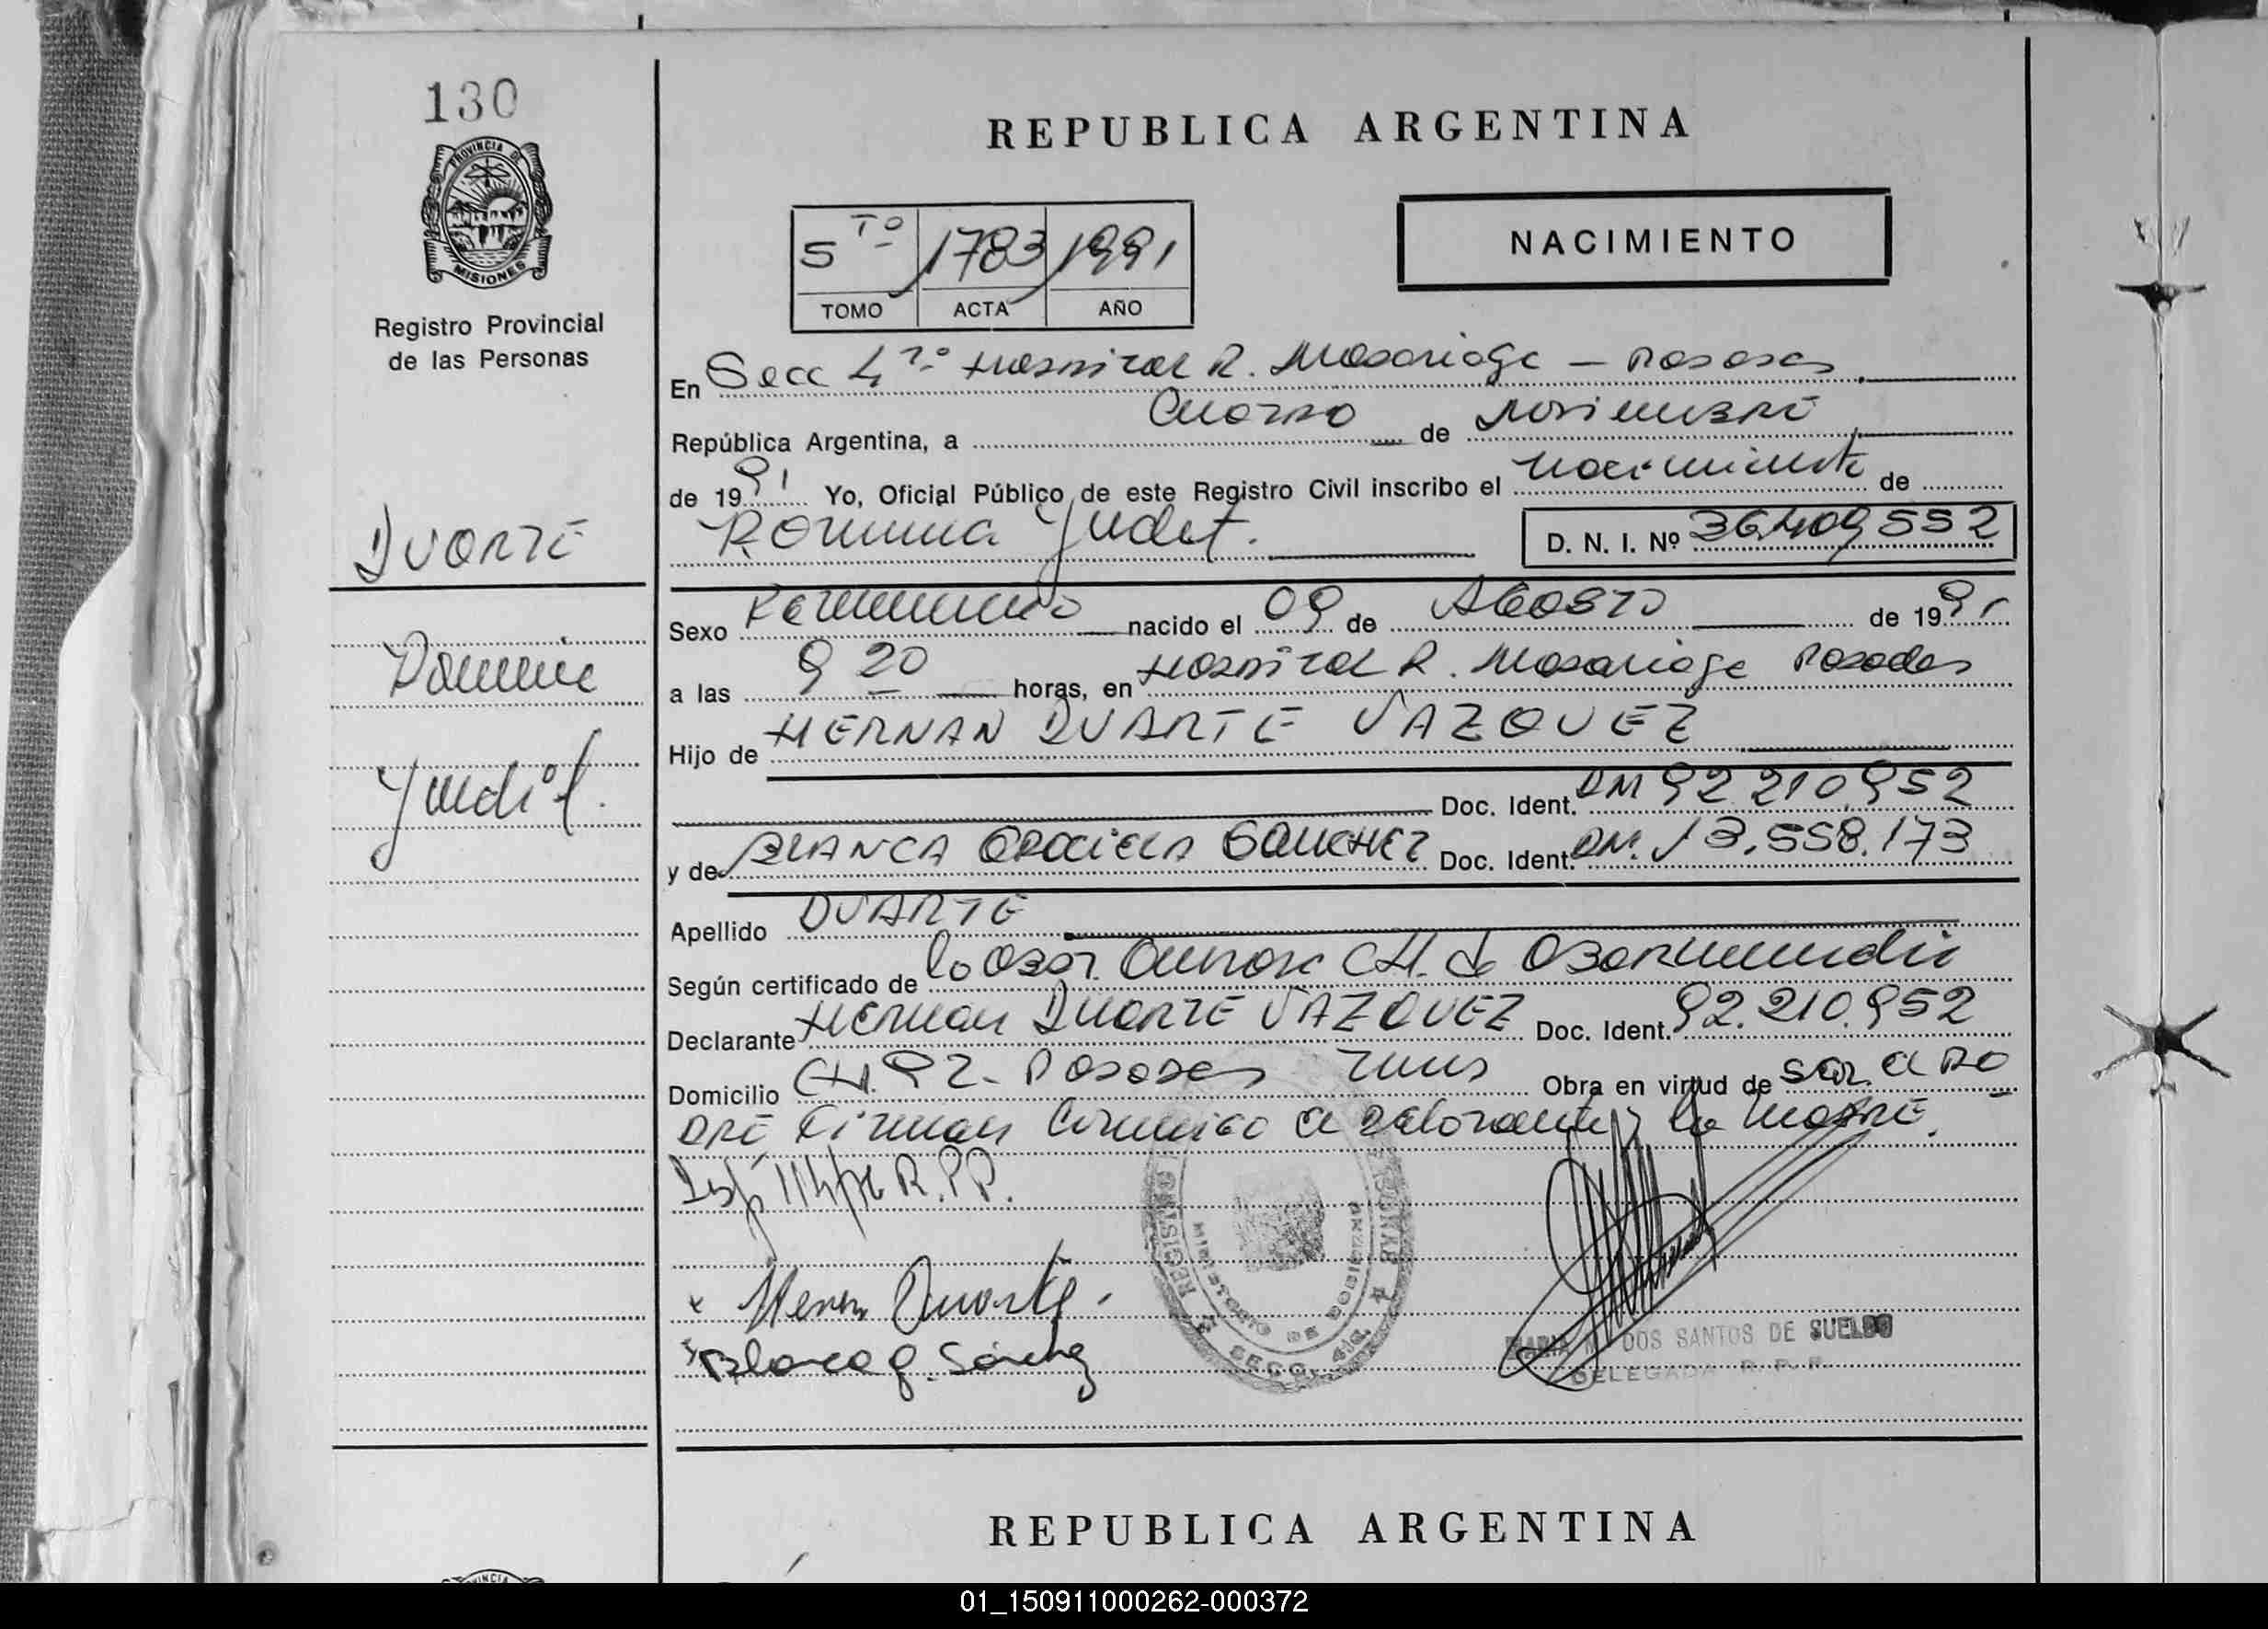 130
PROVINCIA DE
MISIONES
Registro Provincial
de las Personas
DUARTE
Romina
Yudit.
REPUBLICA ARGENTINA
NACIMIENTO
5 to 1783 1991
TOMO ACTA AÑO
En Secc 4ta Hospital R. Madariaga - Posadas
República Argentina, a Cuatro de Noviembre
de 1991 Yo, Oficial Público de este Registro Civil inscribo el nacimiento de
Romina Yudit. D. N. I. Nº 36.409552
Sexo Femenino nacido el 09 de Agosto de 1991
a las 9 20 horas, en Hospital R. Madariaga Posadas
Hijo de HERNAN DUARTE VAZQUEZ
Doc. Ident. DNI 92 210.952
y de BLANCA GRACIELA SANCHEZ Doc. Ident. DNI. 13.558.173
Apellido DUARTE
Según certificado de la Obst. CH. de
Declarante Hernan DUARTE VAZQUEZ Doc. Ident. 92.210.952
Domicilio CH. 92 - Posadas Mnes Obra en virtud de ser el pa
dre Firman conmigo el declarante y la madre.
R.PP.
x Hernan Duarte.
x Blanca g. Sánchez
MINISTERIO DE
SECC. 4ta.
MARIA DOS SANTOS DE SUELDO
DELEGADA R. P. P.
REPUBLICA ARGENTINA
01_150911000262-000372